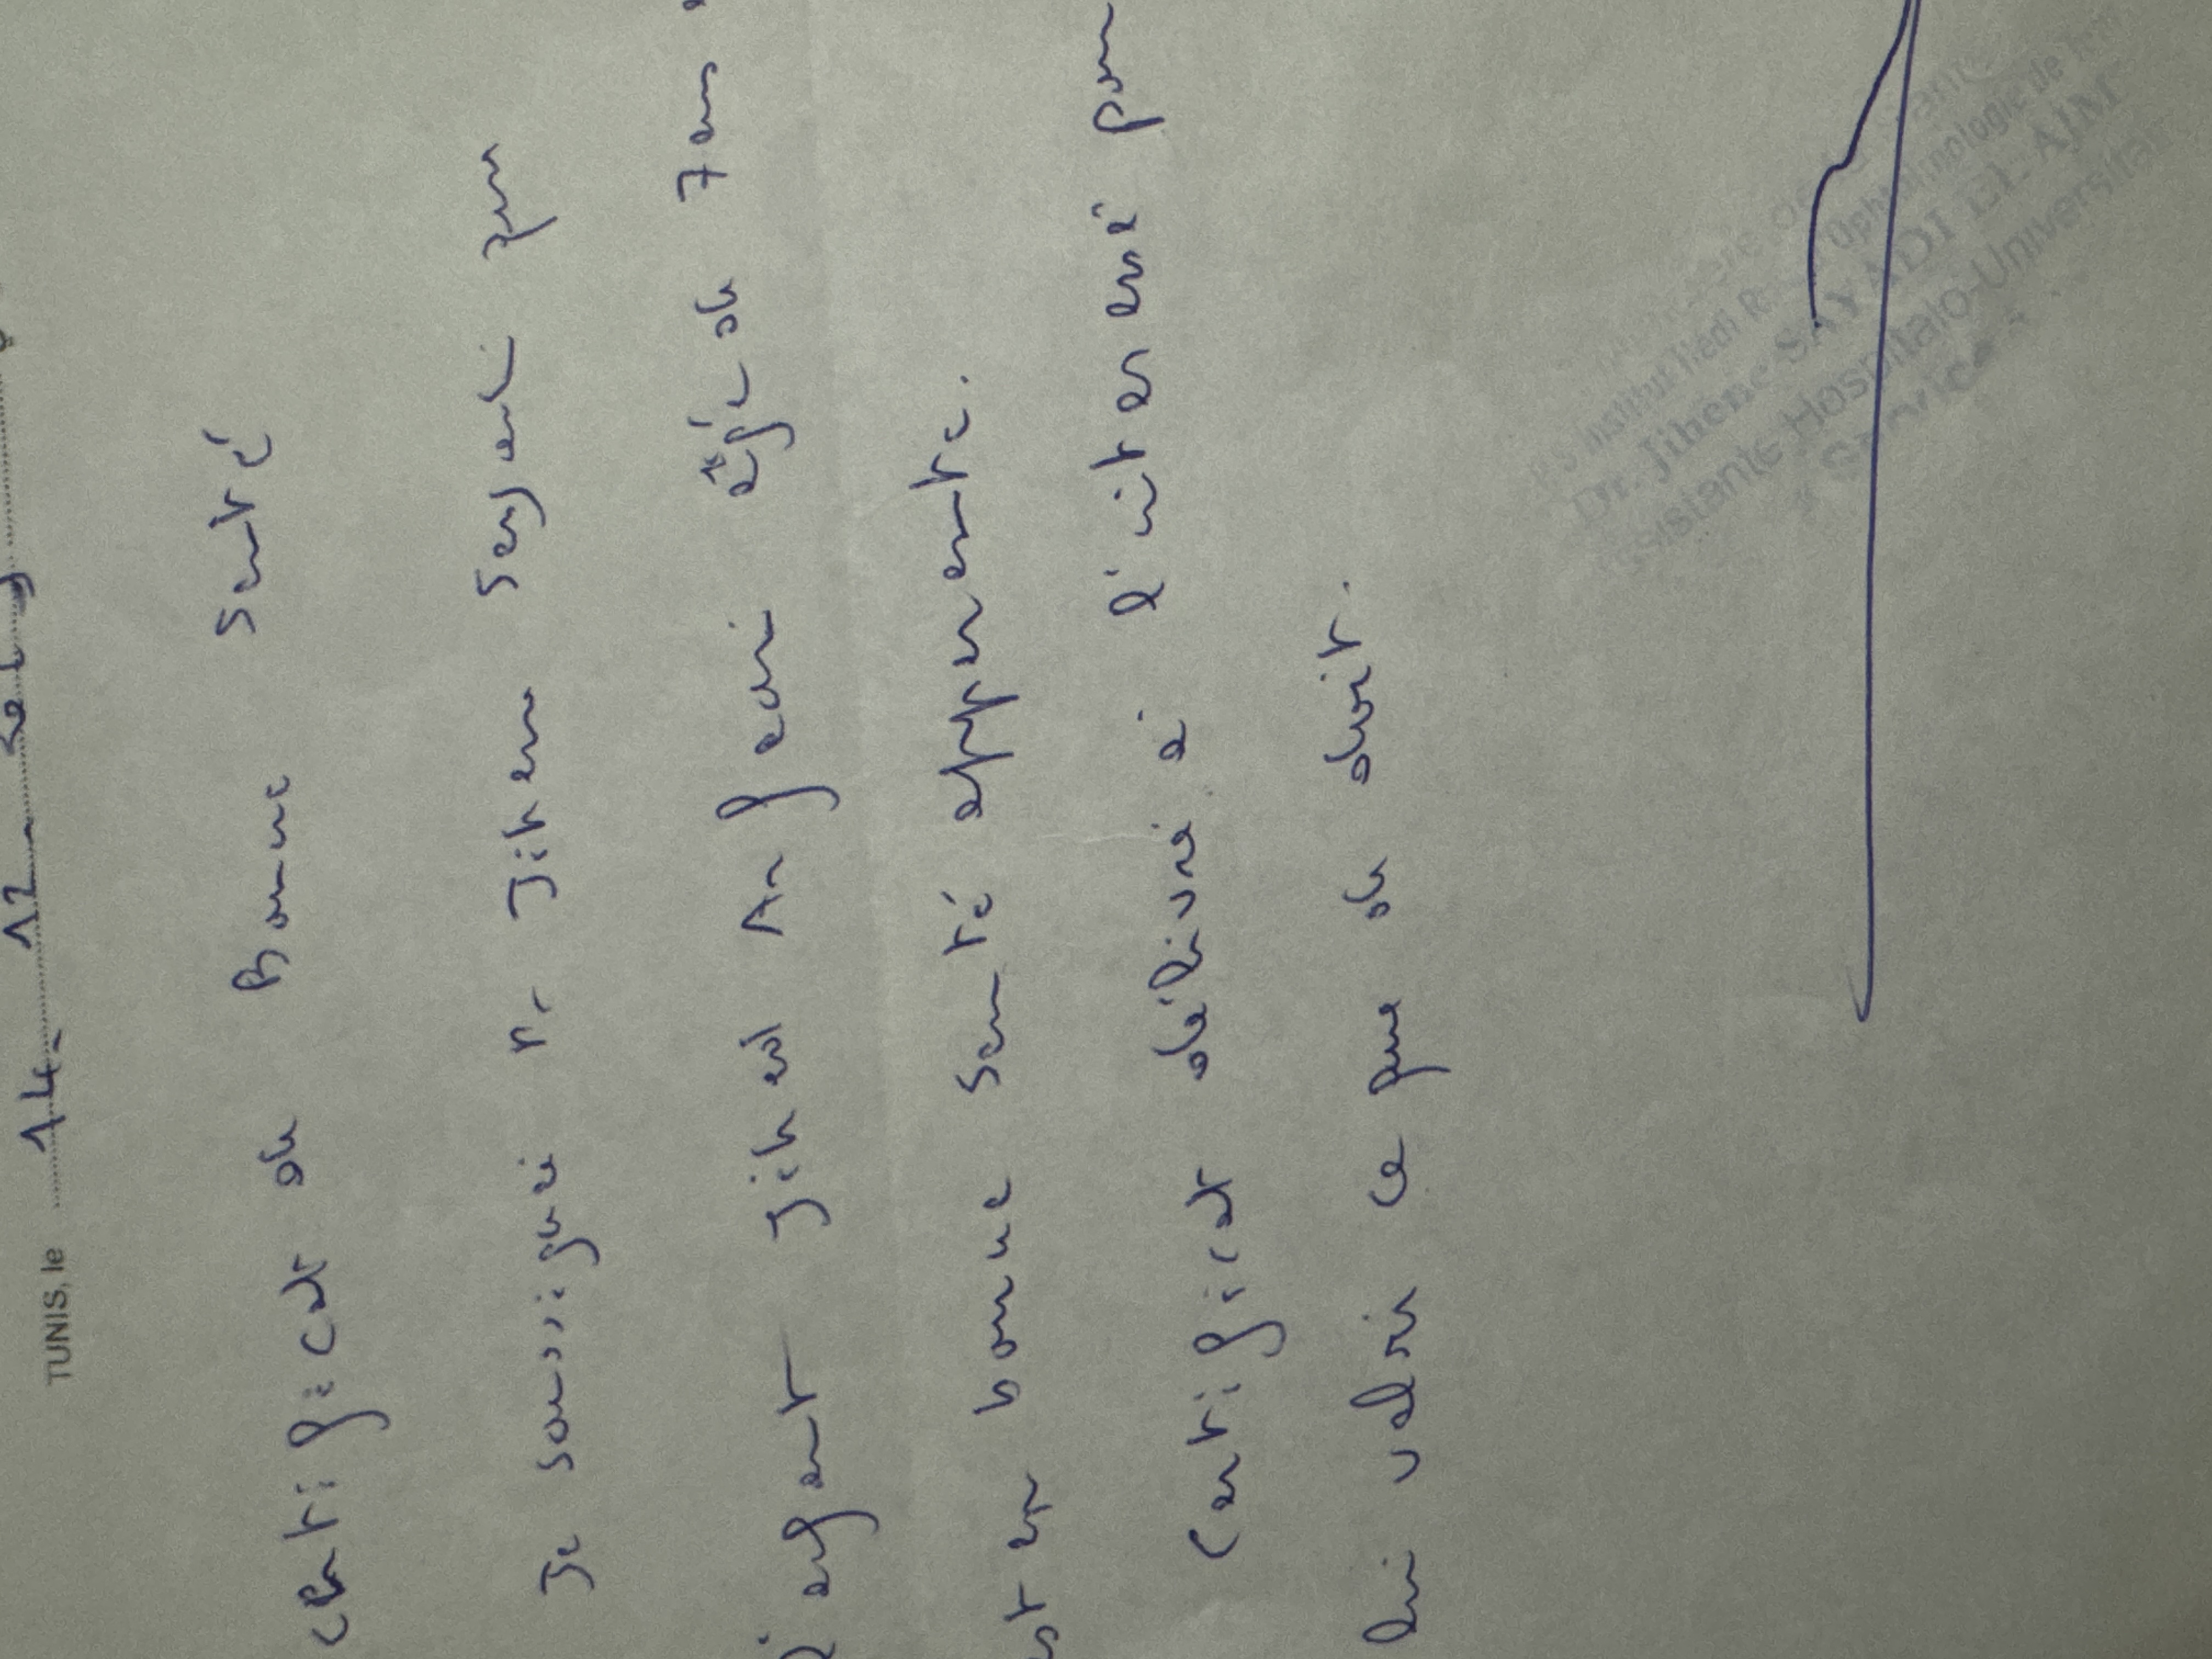 TUNIS, le 14 - 12 -
Certificat de Bonne Santé
Je soussigné Dr Jihene Sayadi que
l'enfant Jihed Arfaoui âgé de 7 ans
est en bonne santé apparente.
Certificat délivré à l'intéressé pour
lui valoir ce que de droit.
Institut Hédi R. Ophtalmologie de
Dr. Jihene SAYADI EL AJM
Assistante Hospitalo-Universitai
Service